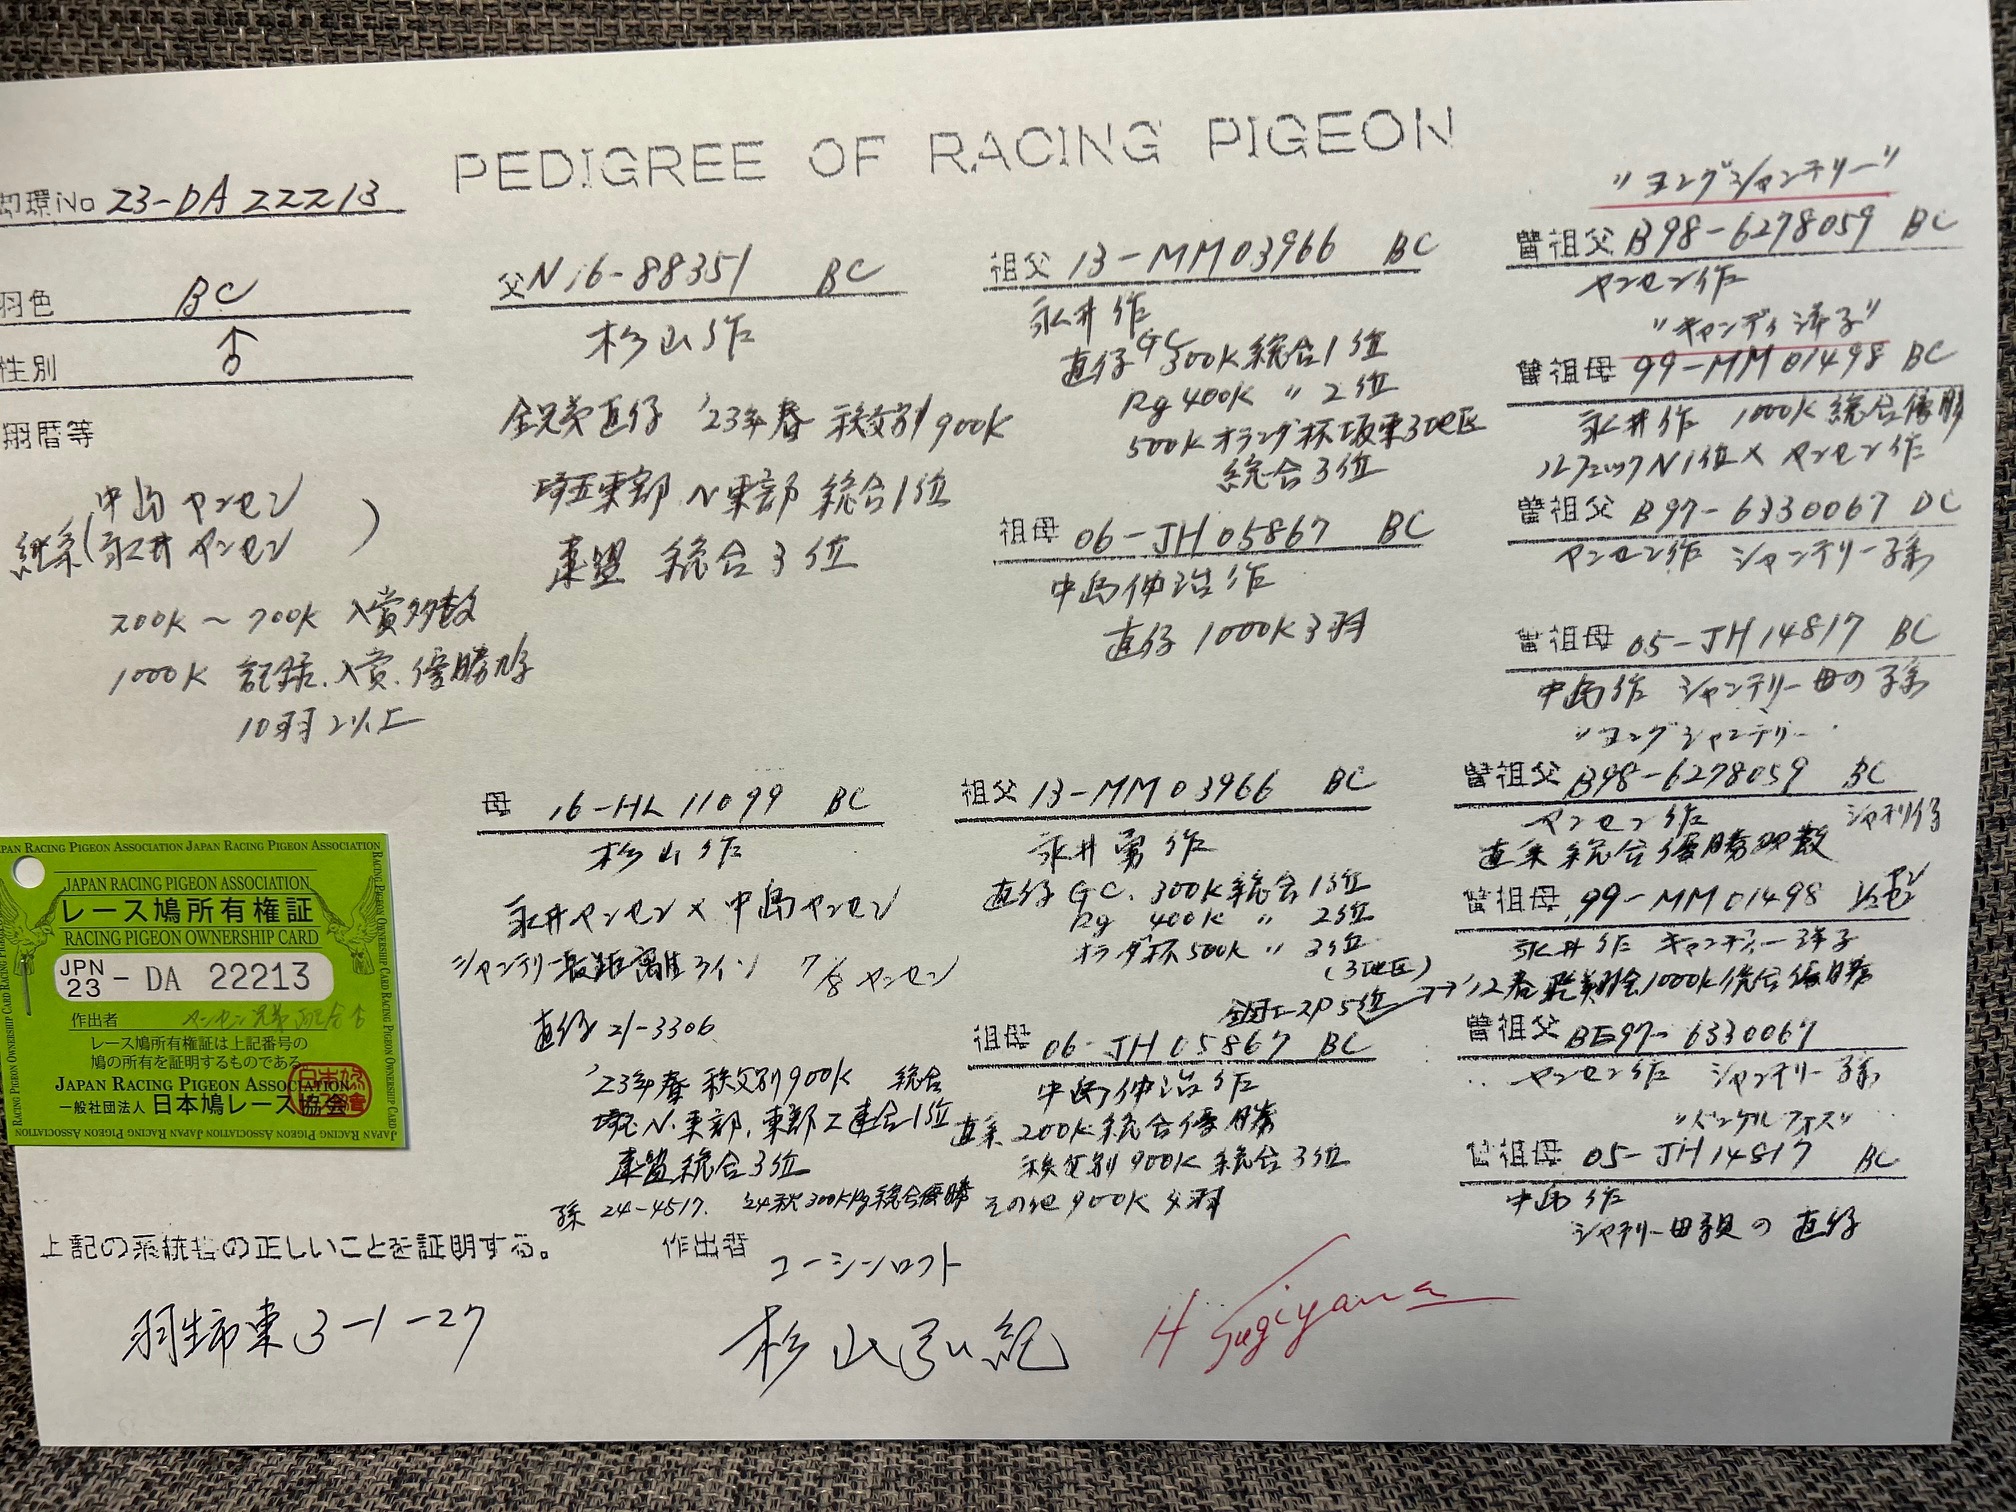 PEDIGREE OF RACING PIGEON
脚環No 23-DA 22213
羽色 BC
性別 ♂
翔暦等
中島ヤンセン
系(永井ヤンセン)
200K～700K 入賞多数
1000K 記録.入賞.優勝鳩
10羽以上
父 N16-88351 BC
杉山作
全兄弟直仔 '23年春 秩父別900K
埼玉東部 N東部 総合1位
連盟 総合3位
母 16-HL 11099 BC
杉山作
永井ヤンセン×中島ヤンセン
シャンテリー最短距離ライン 7/8 ヤンセン
直仔 21-3306
'23年春 秩父別900K 総合
埼玉N.東部,東部工連合1位
連盟総合3位
孫 24-4517. '24秋300KRg総合優勝
祖父 13-MM03966 BC
永井作
直仔 GC 300K総合1位
Rg 400K 〃 2位
500Kオランダ杯坂東3地区
総合3位
祖母 06-JH05867 BC
中島伸治作
直仔 1000K3羽
祖父 13-MM03966 BC
永井勇作
直仔 GC. 300K総合1位
Rg 400K 〃 2位
オランダ杯500K 〃 3位
(3地区)
全国エースP5位
祖母 06-JH05867 BC
中島伸治作
直系 200K総合優勝
秩父別900K 総合3位
その他900K 4羽
"ヨングシャンテリー"
曽祖父 B98-6278059 BC
ヤンセン作
"キャンディ洋子"
曽祖母 99-MM01498 BC
永井作 1000K総合優勝
N1位×ヤンセン作
曽祖父 B97-6330067 DC
ヤンセン作 シャンテリー孫
曽祖母 05-JH14817 BC
中島作 シャンテリー母の孫
"ヨングシャンテリー
曽祖父 B98-6278059 BC
ヤンセン作 シャンテリ仔
直系総合優勝多数
曽祖母 99-MM01498
永井作 キャンディー洋子
→'12春 1000K総合優勝
曽祖父 BE97-6330067
ヤンセン作 シャンテリー孫
曽祖母 05-JH14817 BC
中島作
の直仔
JAPAN RACING PIGEON ASSOCIATION
レース鳩所有権証
RACING PIGEON OWNERSHIP CARD
JPN 23 - DA 22213
作出者
レース鳩所有権証は上記番号の
鳩の所有を証明するものである
JAPAN RACING PIGEON ASSOCIATION
一般社団法人 日本鳩レース協会
上記の系統書の正しいことを証明する。
作出者
コーシンロフト
羽生市東3-1-27
杉山弘紀
H Sugiyama